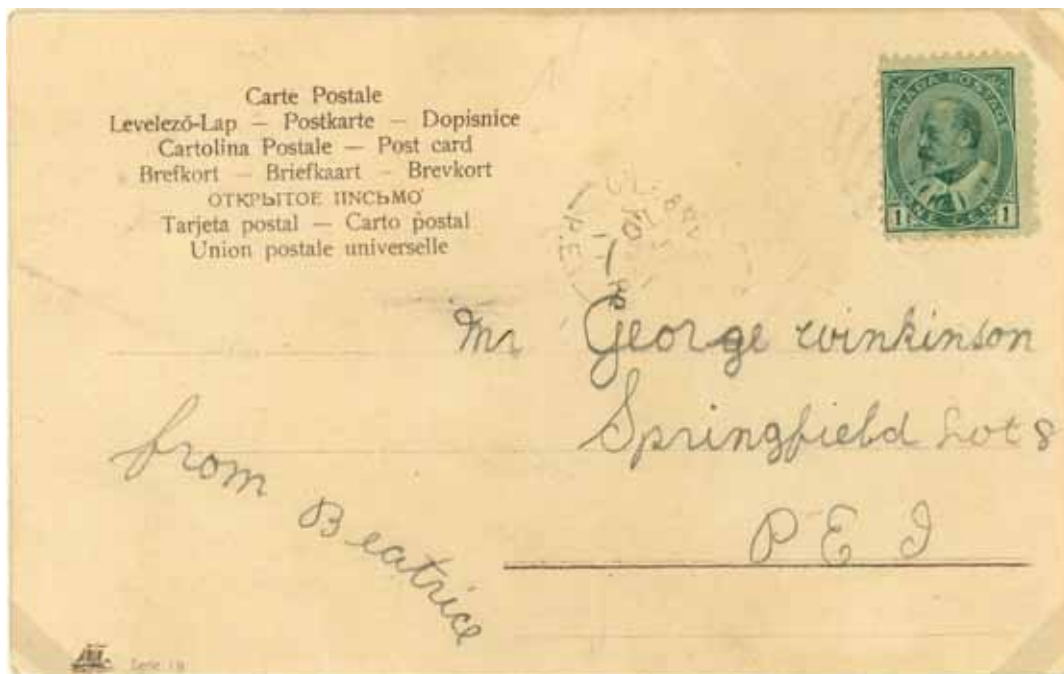 Carte Postale
Levelező-Lap — Postkarte — Dopisnice
Cartolina Postale — Post card
Brefkort — Briefkaart — Brevkort
ОТКРЫТОЕ ПИСЬМО
Tarjeta postal — Carto postal
Union postale universelle
CANADA POSTAGE
1 ONE CENT 1
P.E.I
Mr George Winkinson
Springfield Lot 8
P E I
from Beatrice
Serie